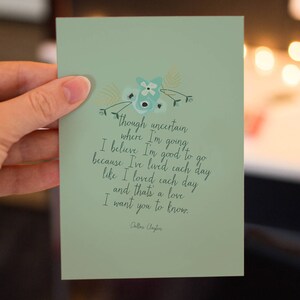 though uncertain
where I'm going
I believe I'm good to go
because I've lived each day
like I loved each day
and thats a love
I want you to know